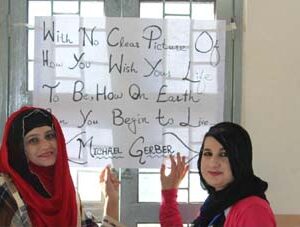 With No Clear Picture Of
How You Wish Your Life
To Be, How On Earth
You Begin to Live
Michael Gerber